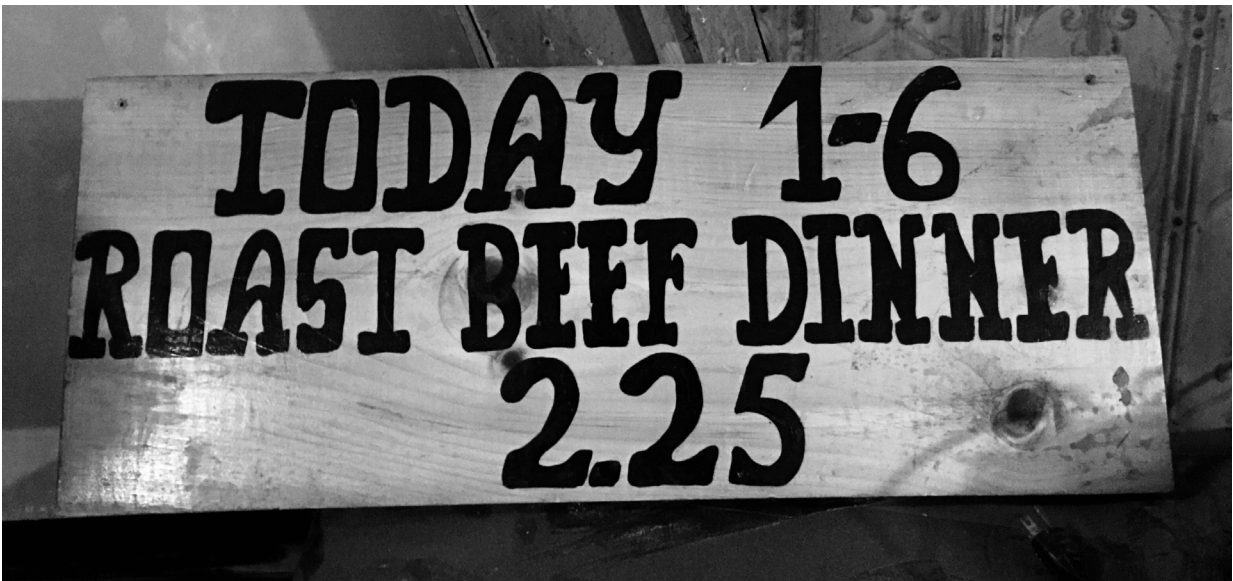 TODAY 1-6
ROAST BEEF DINNER
2.25